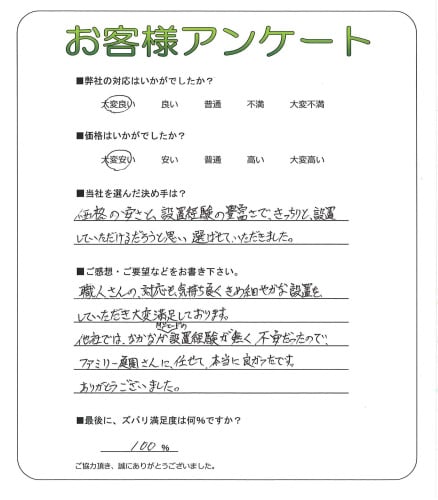 お客様アンケート
■弊社の対応はいかがでしたか？
大変良い 良い 普通 不満 大変不満
■価格はいかがでしたか？
大変安い 安い 普通 高い 大変高い
■当社を選んだ決め手は？
価格の安さと、設置経験の豊富さで、きっちりと、設置
していただけるだろうと思い 選ばせていただきました。
■ご感想・ご要望などをお書き下さい。
職人さんの、対応も気持ち良くきめ細やかな設置を、
していただき大変満足しております。
他社では、なかなか設置経験が無く 不安だったので、
ファミリー庭園さんに、任せて、本当に良かったです。
ありがとうございました。
■最後に、ズバリ満足度は何％ですか？
100 %
ご協力頂き、誠にありがとうございました。